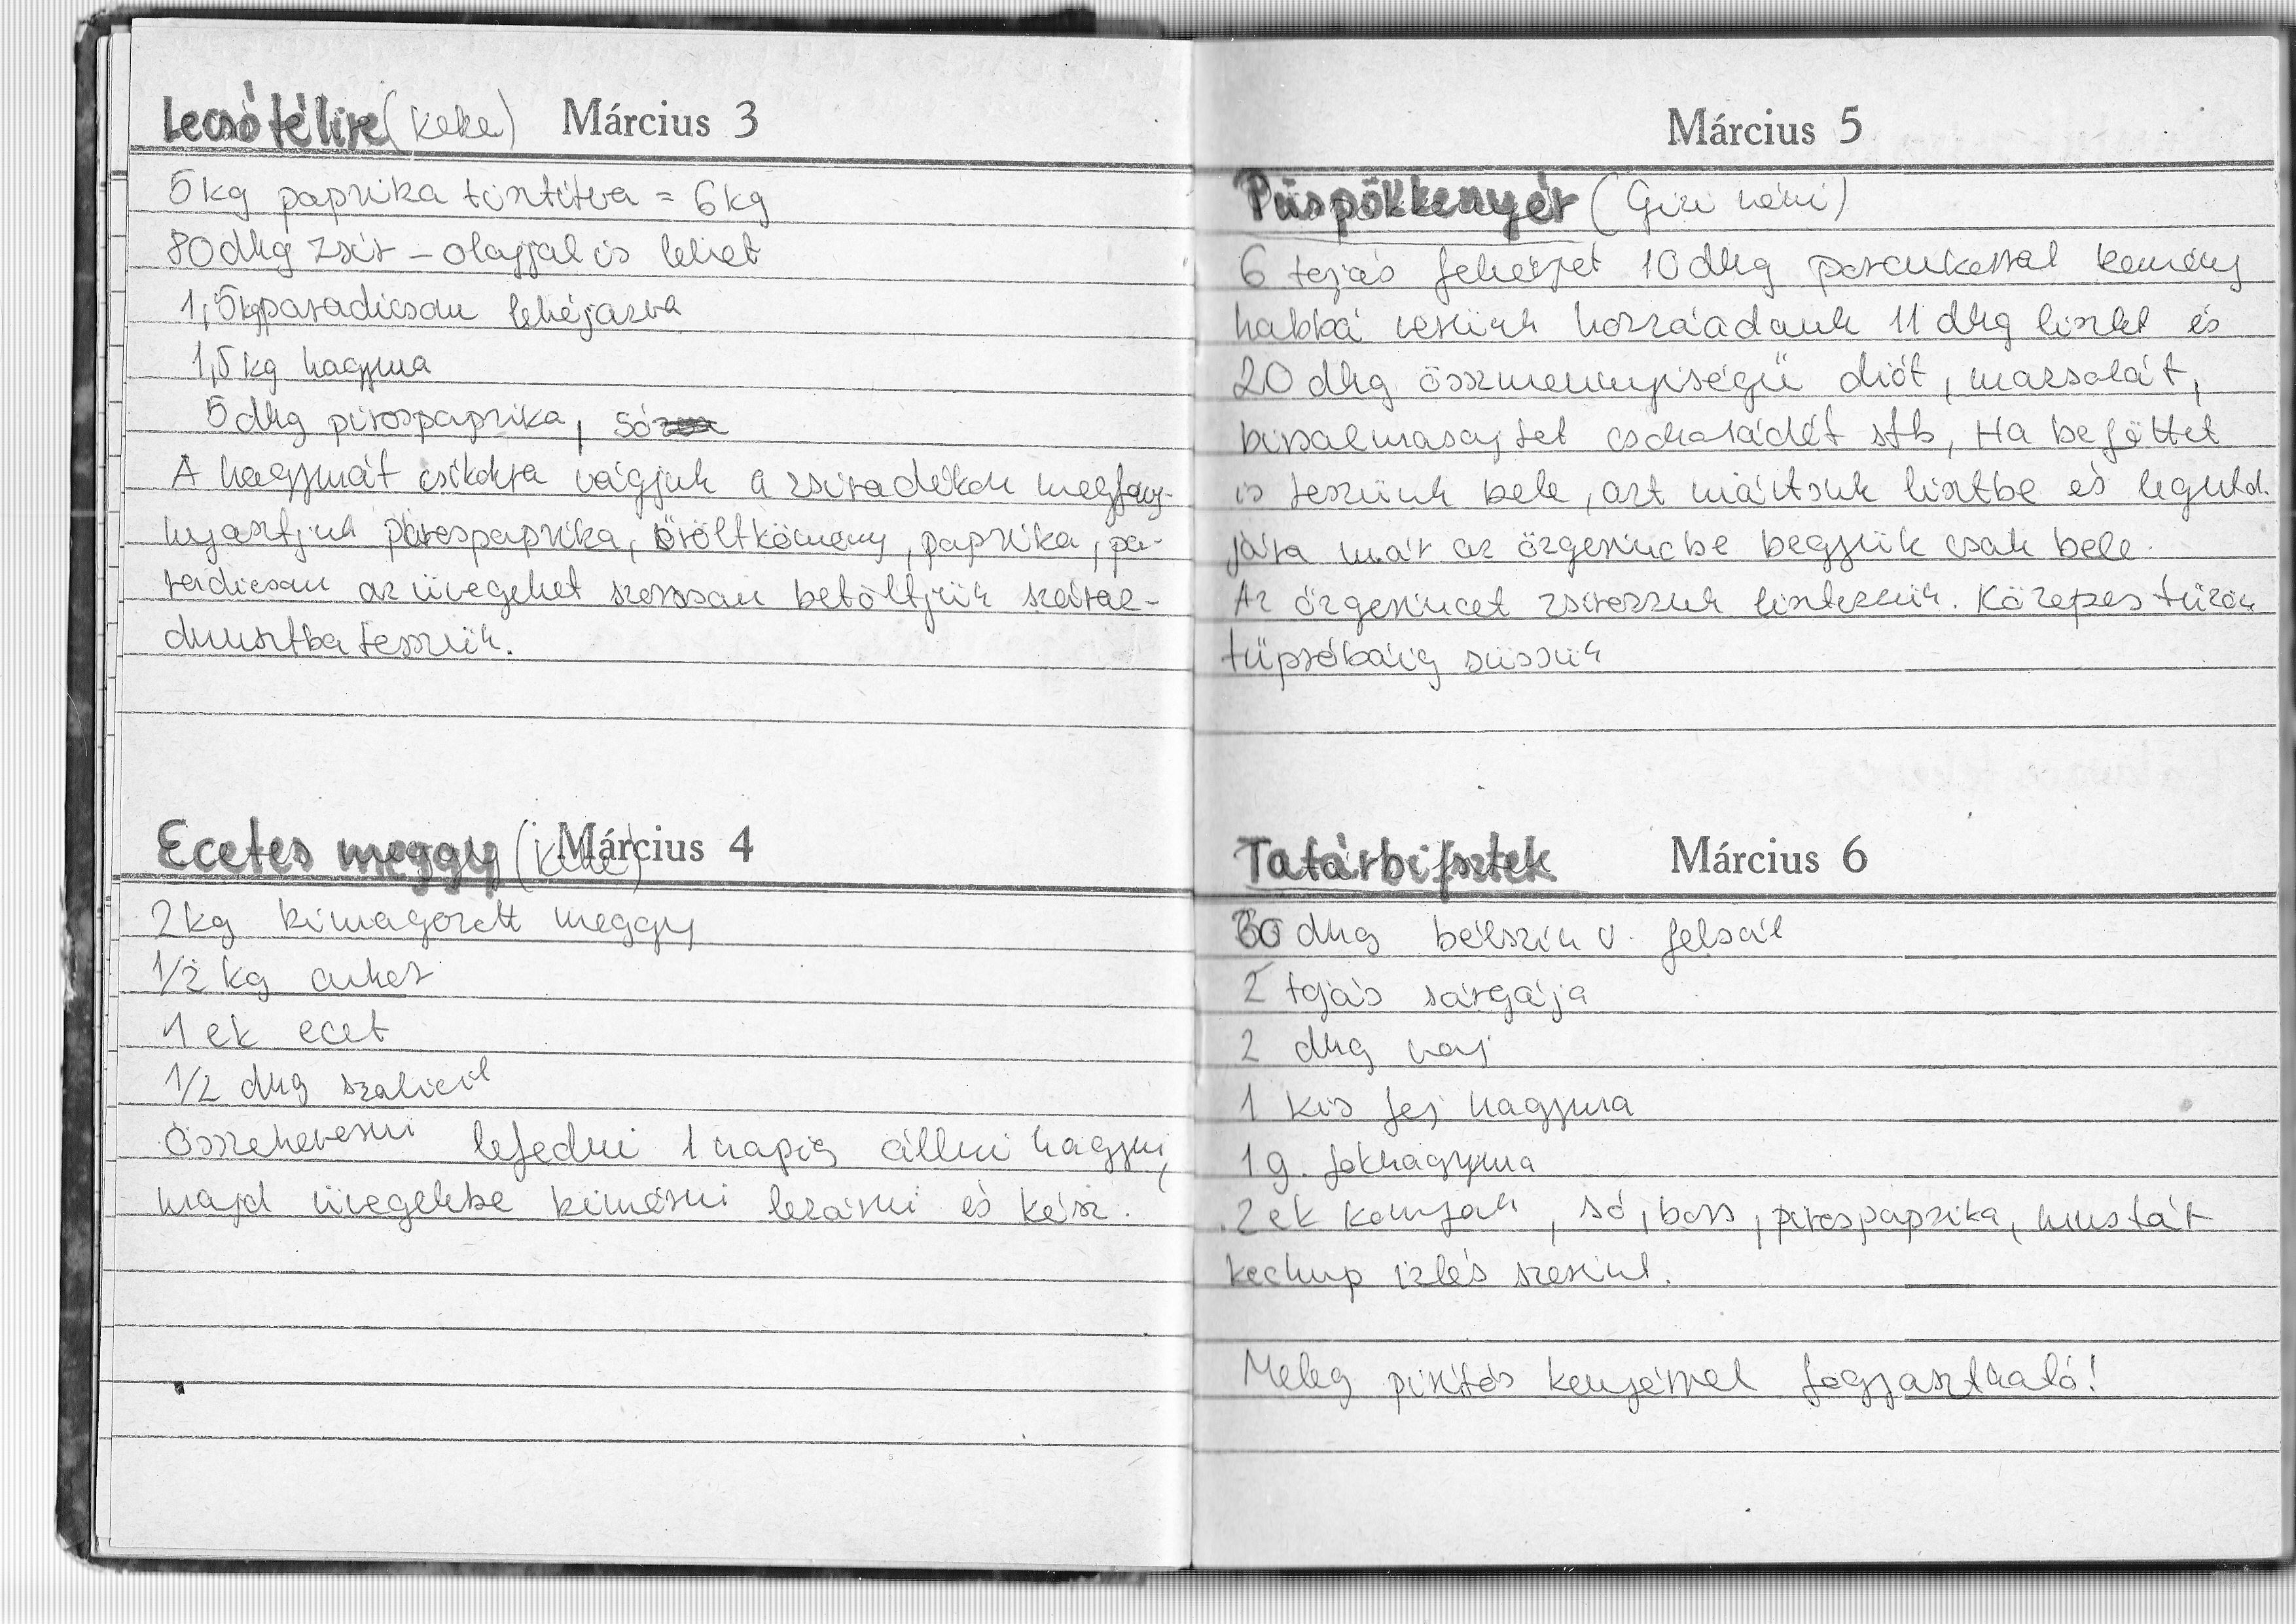 Lecsó télire (Keke) Március 3
5 kg paprika tisztítva = 6 kg
80 dkg zsír – olajjal is lehet
1,5 kg paradicsom lehéjazva
1,5 kg hagyma
5 dkg pirospaprika, só
A hagymát csíkokra vágjuk a zsiradékon megfony-
nyasztjuk pirospaprika, őröltkömény, paprika, pa-
radicsom az üvegeket szorosan betöltjük száraz-
dunsztba tesszük.
Ecetes meggy (Keke) Március 4
2 kg kimagozott meggy
1/2 kg cukor
1 ek ecet
1/2 dkg szalicil
Összekeverni lefedni 1 napig állni hagyni,
majd üvegekbe kimérni lezárni és kész.
Március 5
Püspökkenyér (Gizi néni)
6 tojás fehérjét 10 dkg porcukorral kemény
habbá verünk hozzáadunk 11 dkg lisztet és
20 dkg összmennyiségű diót, mazsolát,
birsalmasajtot csokoládét stb, Ha befőttet
is teszünk bele, azt mártsuk lisztbe és legutol.
jára már az őzgerincbe tegyük csak bele.
Az őzgerincet zsírozzuk lisztezzük. Közepes tűzön
tűpróbáig sütjük
Tatárbifsztek Március 6
30 dkg bélszín v. felsál
2 tojás sárgája
2 dkg vaj
1 kis fej hagyma
1 g. fokhagyma
2 ek konyak, só, bors, pirospaprika, mustár
kechup izlés szerint.
Meleg pirítós kenyérrel fogyasztható!